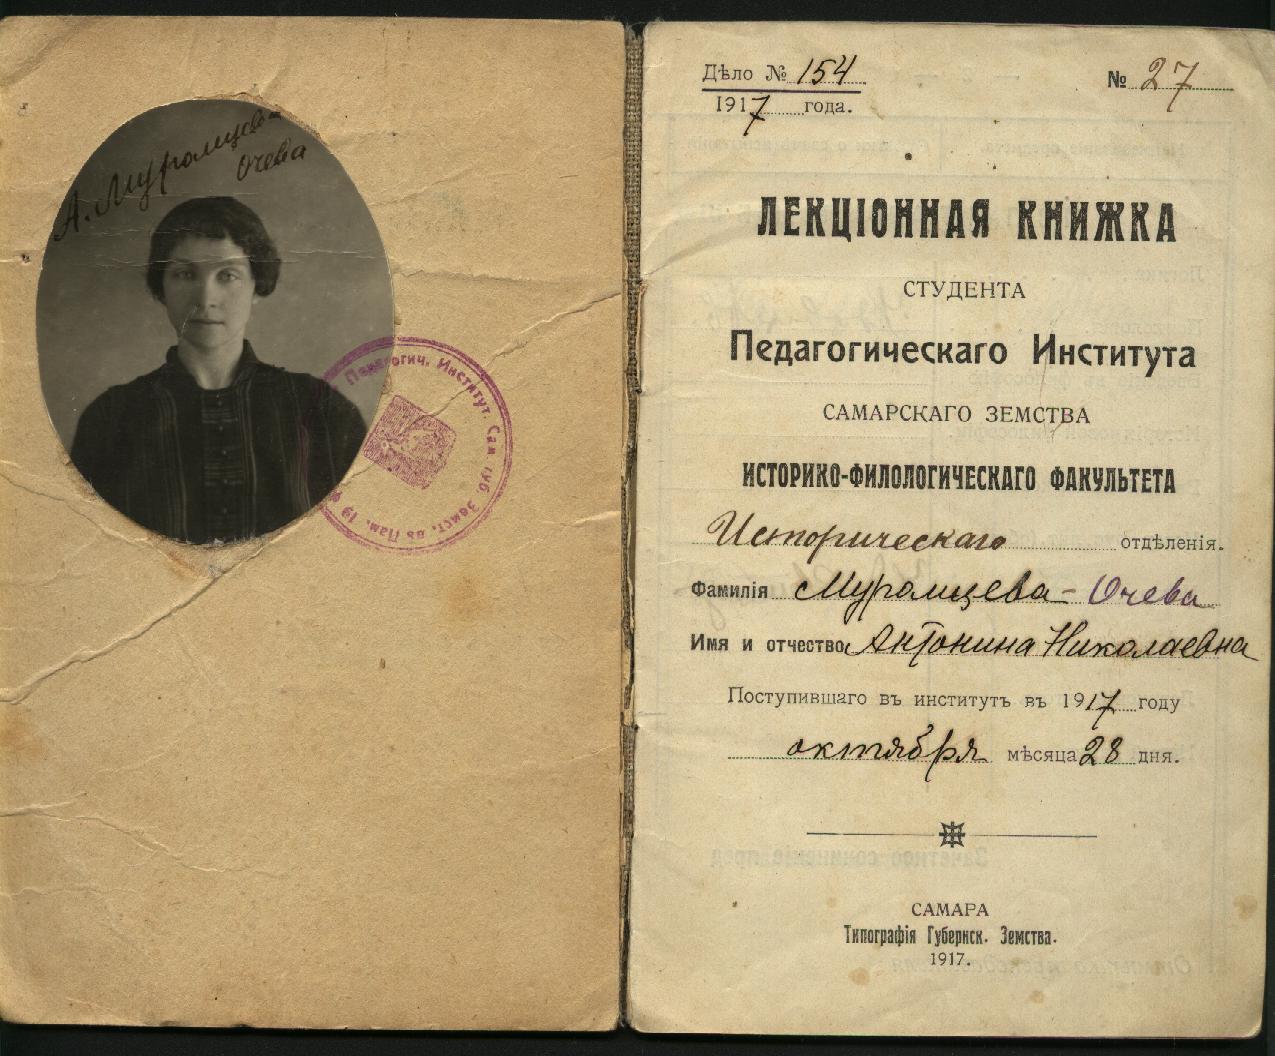 А. Муромцева-
Очева
Педагогич. Институт. Сам. губ. Земст. въ Пам. 19 Ф
Дѣло № 154
1917 года.
№ 27
ЛЕКЦІОННАЯ КНИЖКА
СТУДЕНТА
Педагогическаго Института
САМАРСКАГО ЗЕМСТВА
ИСТОРИКО-ФИЛОЛОГИЧЕСКАГО ФАКУЛЬТЕТА
Историческаго отдѣленія.
Фамилія Муромцева-Очева
Имя и отчество Антонина Николаевна
Поступившаго въ институтъ въ 1917 году
октября мѣсяца 28 дня.
САМАРА
Типографія Губернск. Земства.
1917.